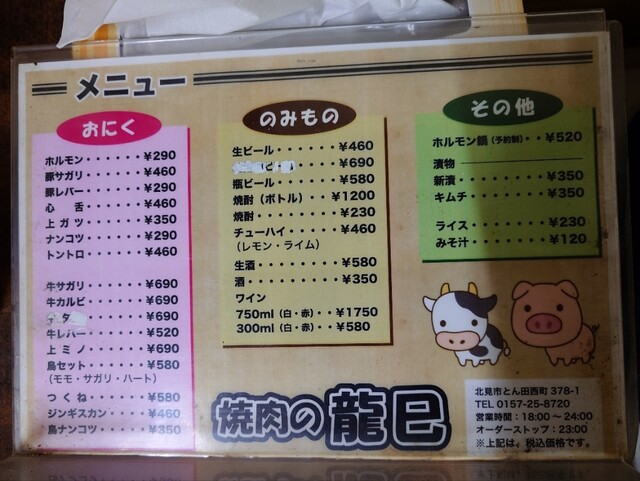 メニュー
おにく
ホルモン・・・・・・・¥290
豚サガリ・・・・・・・¥460
豚レバー・・・・・・・¥290
心 舌・・・・・・・¥460
上ガツ・・・・・・・¥350
ナンコツ・・・・・・・¥290
トントロ・・・・・・・¥460
牛サガリ・・・・・・・¥690
牛カルビ・・・・・・・¥690
・・・・・・・¥690
牛レバー・・・・・・・¥520
上ミノ・・・・・・・¥690
鳥セット・・・・・・・¥580
(モモ・サガリ・ハート)
つくね・・・・・・・¥580
ジンギスカン・・・・・¥460
鳥ナンコツ・・・・・・¥350
のみもの
生ビール・・・・・・・¥460
・・・・・¥690
瓶ビール・・・・・・・¥580
焼酎(ボトル)・・・¥1200
焼酎・・・・・・・・・¥230
チューハイ・・・・・・¥460
(レモン・ライム)
生酒・・・・・・・・・¥580
酒・・・・・・・・・・¥350
ワイン
750ml(白・赤)・・¥1750
300ml(白・赤)・・¥580
その他
ホルモン鍋(予約制)・・¥520
漬物
新漬・・・・・・・・・¥350
キムチ・・・・・・・・¥350
ライス・・・・・・・・¥230
みそ汁・・・・・・・・¥120
焼肉の龍巳
北見市とん田西町 378-1
TEL 0157-25-8720
営業時間:18:00~24:00
オーダーストップ:23:00
※上記は、税込価格です。